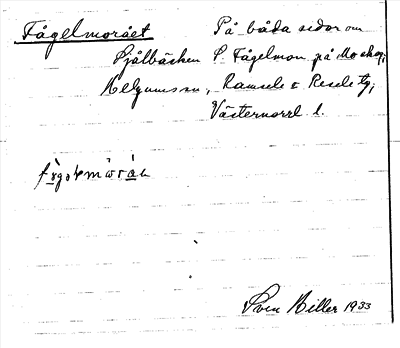 Fågelmorået På båda sidor om
Sjålbäcken S. Fågelmon på Mo skog,
Helgums sn, Ramsele & Resele tg,
Västernorrl. l.
Sven Hiller 1933